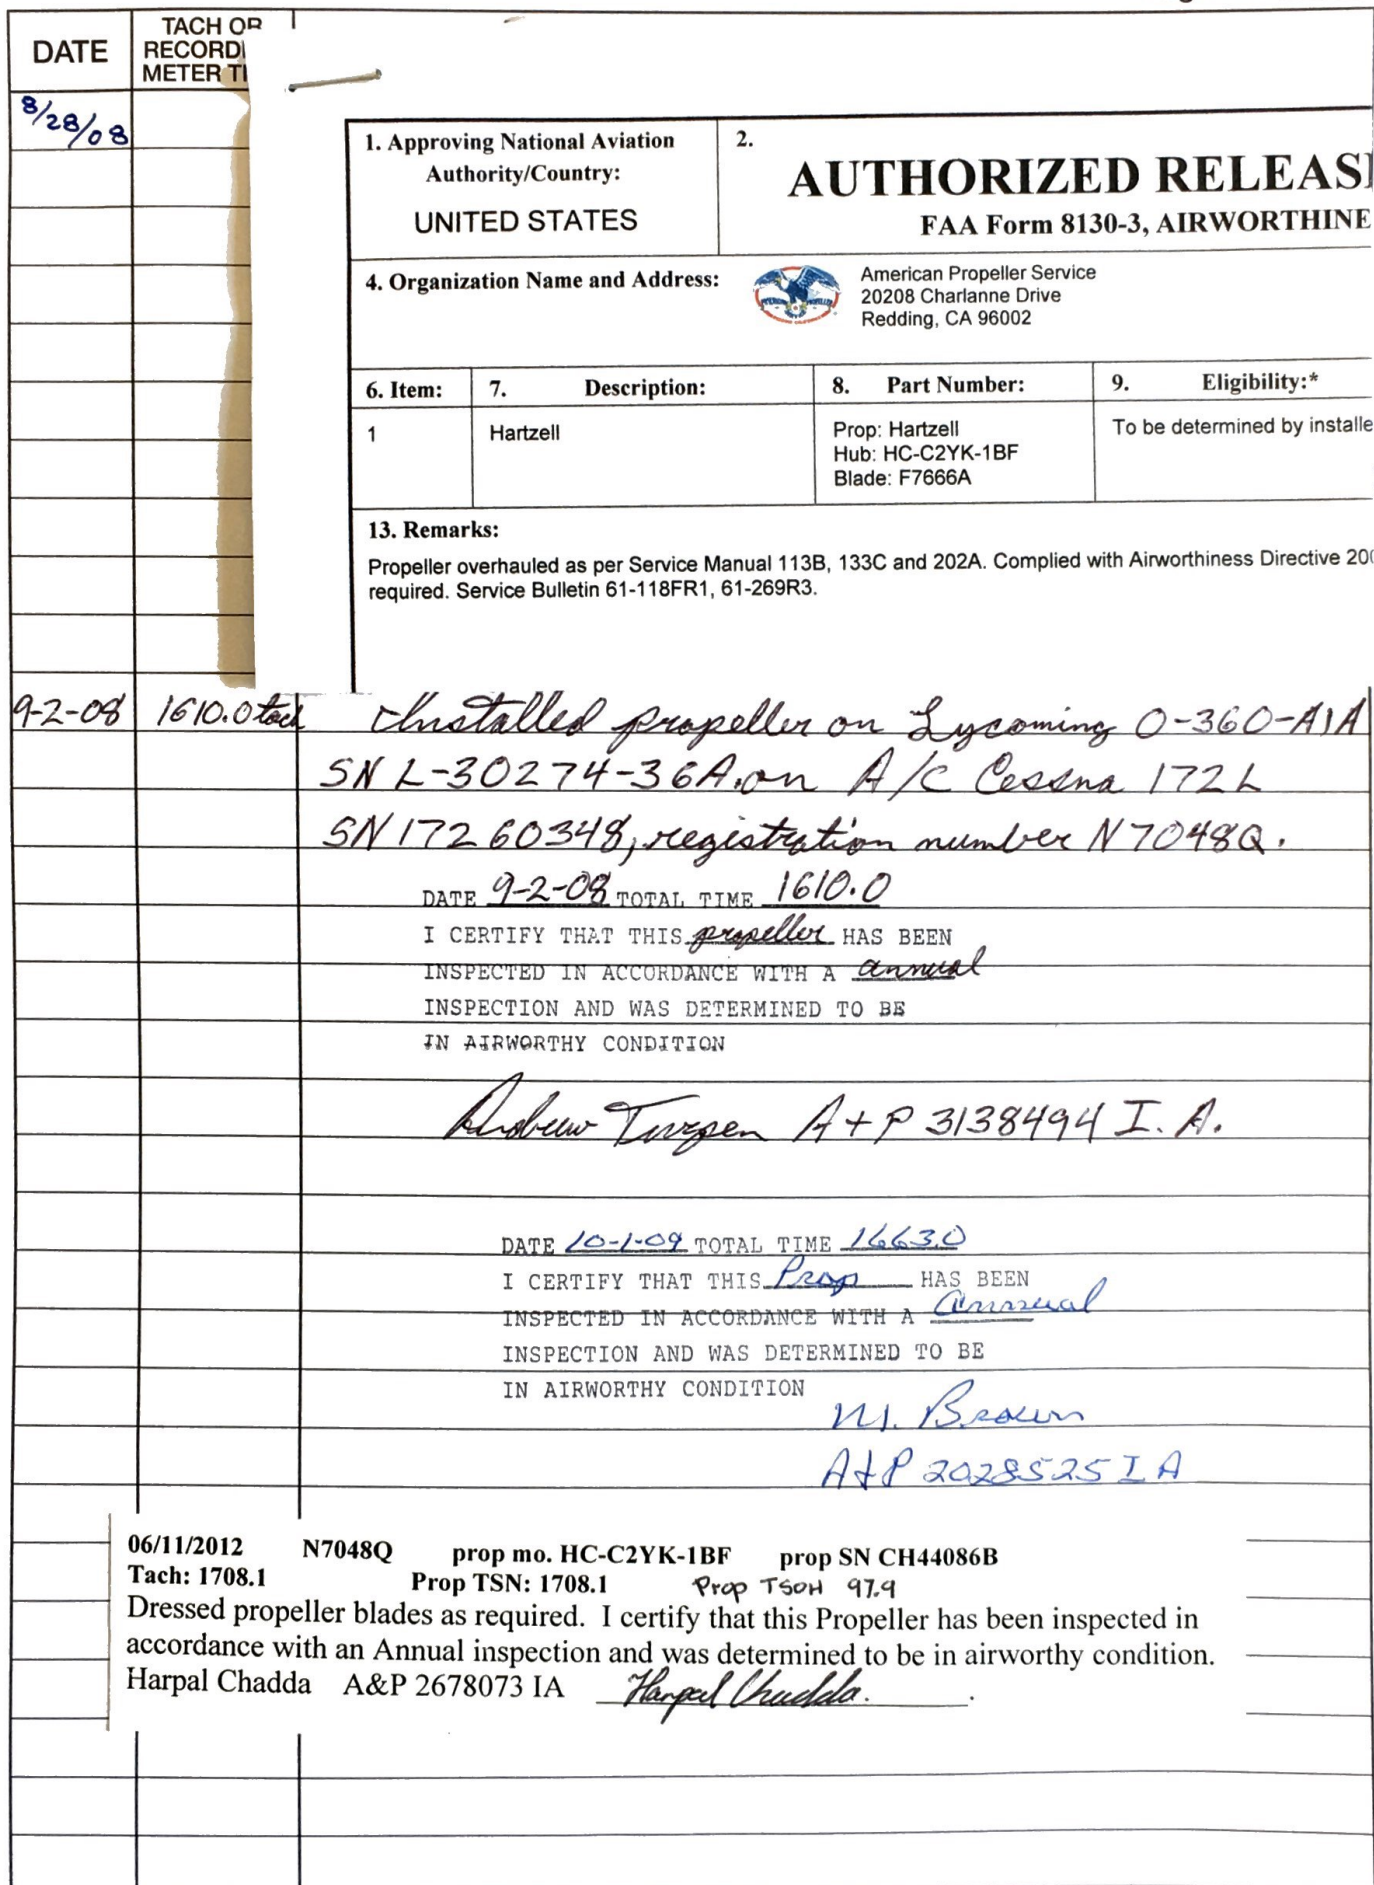 DATE
TACH OR
RECORDI
METER TI
8/28/08
1. Approving National Aviation
Authority/Country:
UNITED STATES
2.
AUTHORIZED RELEAS
FAA Form 8130-3, AIRWORTHINE
4. Organization Name and Address:
American Propeller Service
20208 Charlanne Drive
Redding, CA 96002
6. Item:
7. Description:
8. Part Number:
9. Eligibility:*
1
Hartzell
Prop: Hartzell
Hub: HC-C2YK-1BF
Blade: F7666A
To be determined by installe
13. Remarks:
Propeller overhauled as per Service Manual 113B, 133C and 202A. Complied with Airworthiness Directive 200
required. Service Bulletin 61-118FR1, 61-269R3.
9-2-08 1610.0 tach Installed propeller on Lycoming O-360-A1A
SN L-30274-36A. on A/C Cessna 172L
SN 17260348, registration number N7048Q.
DATE 9-2-08 TOTAL TIME 1610.0
I CERTIFY THAT THIS propeller HAS BEEN
INSPECTED IN ACCORDANCE WITH A annual
INSPECTION AND WAS DETERMINED TO BE
IN AIRWORTHY CONDITION
A+P 3138494 I.A.
DATE 10-1-09 TOTAL TIME 1663.0
I CERTIFY THAT THIS Prop HAS BEEN
INSPECTED IN ACCORDANCE WITH A annual
INSPECTION AND WAS DETERMINED TO BE
IN AIRWORTHY CONDITION
M. Brown
A&P 2028525 IA
06/11/2012 N7048Q prop mo. HC-C2YK-1BF prop SN CH44086B
Tach: 1708.1 Prop TSN: 1708.1 Prop TSOH 97.9
Dressed propeller blades as required. I certify that this Propeller has been inspected in
accordance with an Annual inspection and was determined to be in airworthy condition.
Harpal Chadda A&P 2678073 IA Harpal Chadda.